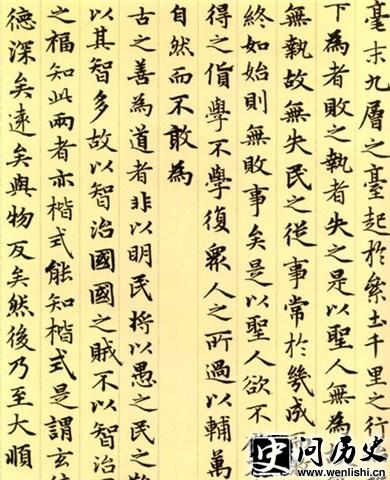 毫末九層之臺起於累土千里之行
下為者敗之執者失之是以聖人無為
無執故無失民之從事常於幾成
終如始則無敗事矣是以聖人欲不
得之貨學不學復眾人之所過以輔萬
自然而不敢為
古之善為道者非以明民將以愚之民之
以其智多故以智治國國之賊不以智治
之福知此兩者亦楷式能知楷式是謂玄
德深矣遠矣與物反矣然後乃至大順
问历史
www.wenlishi.cn